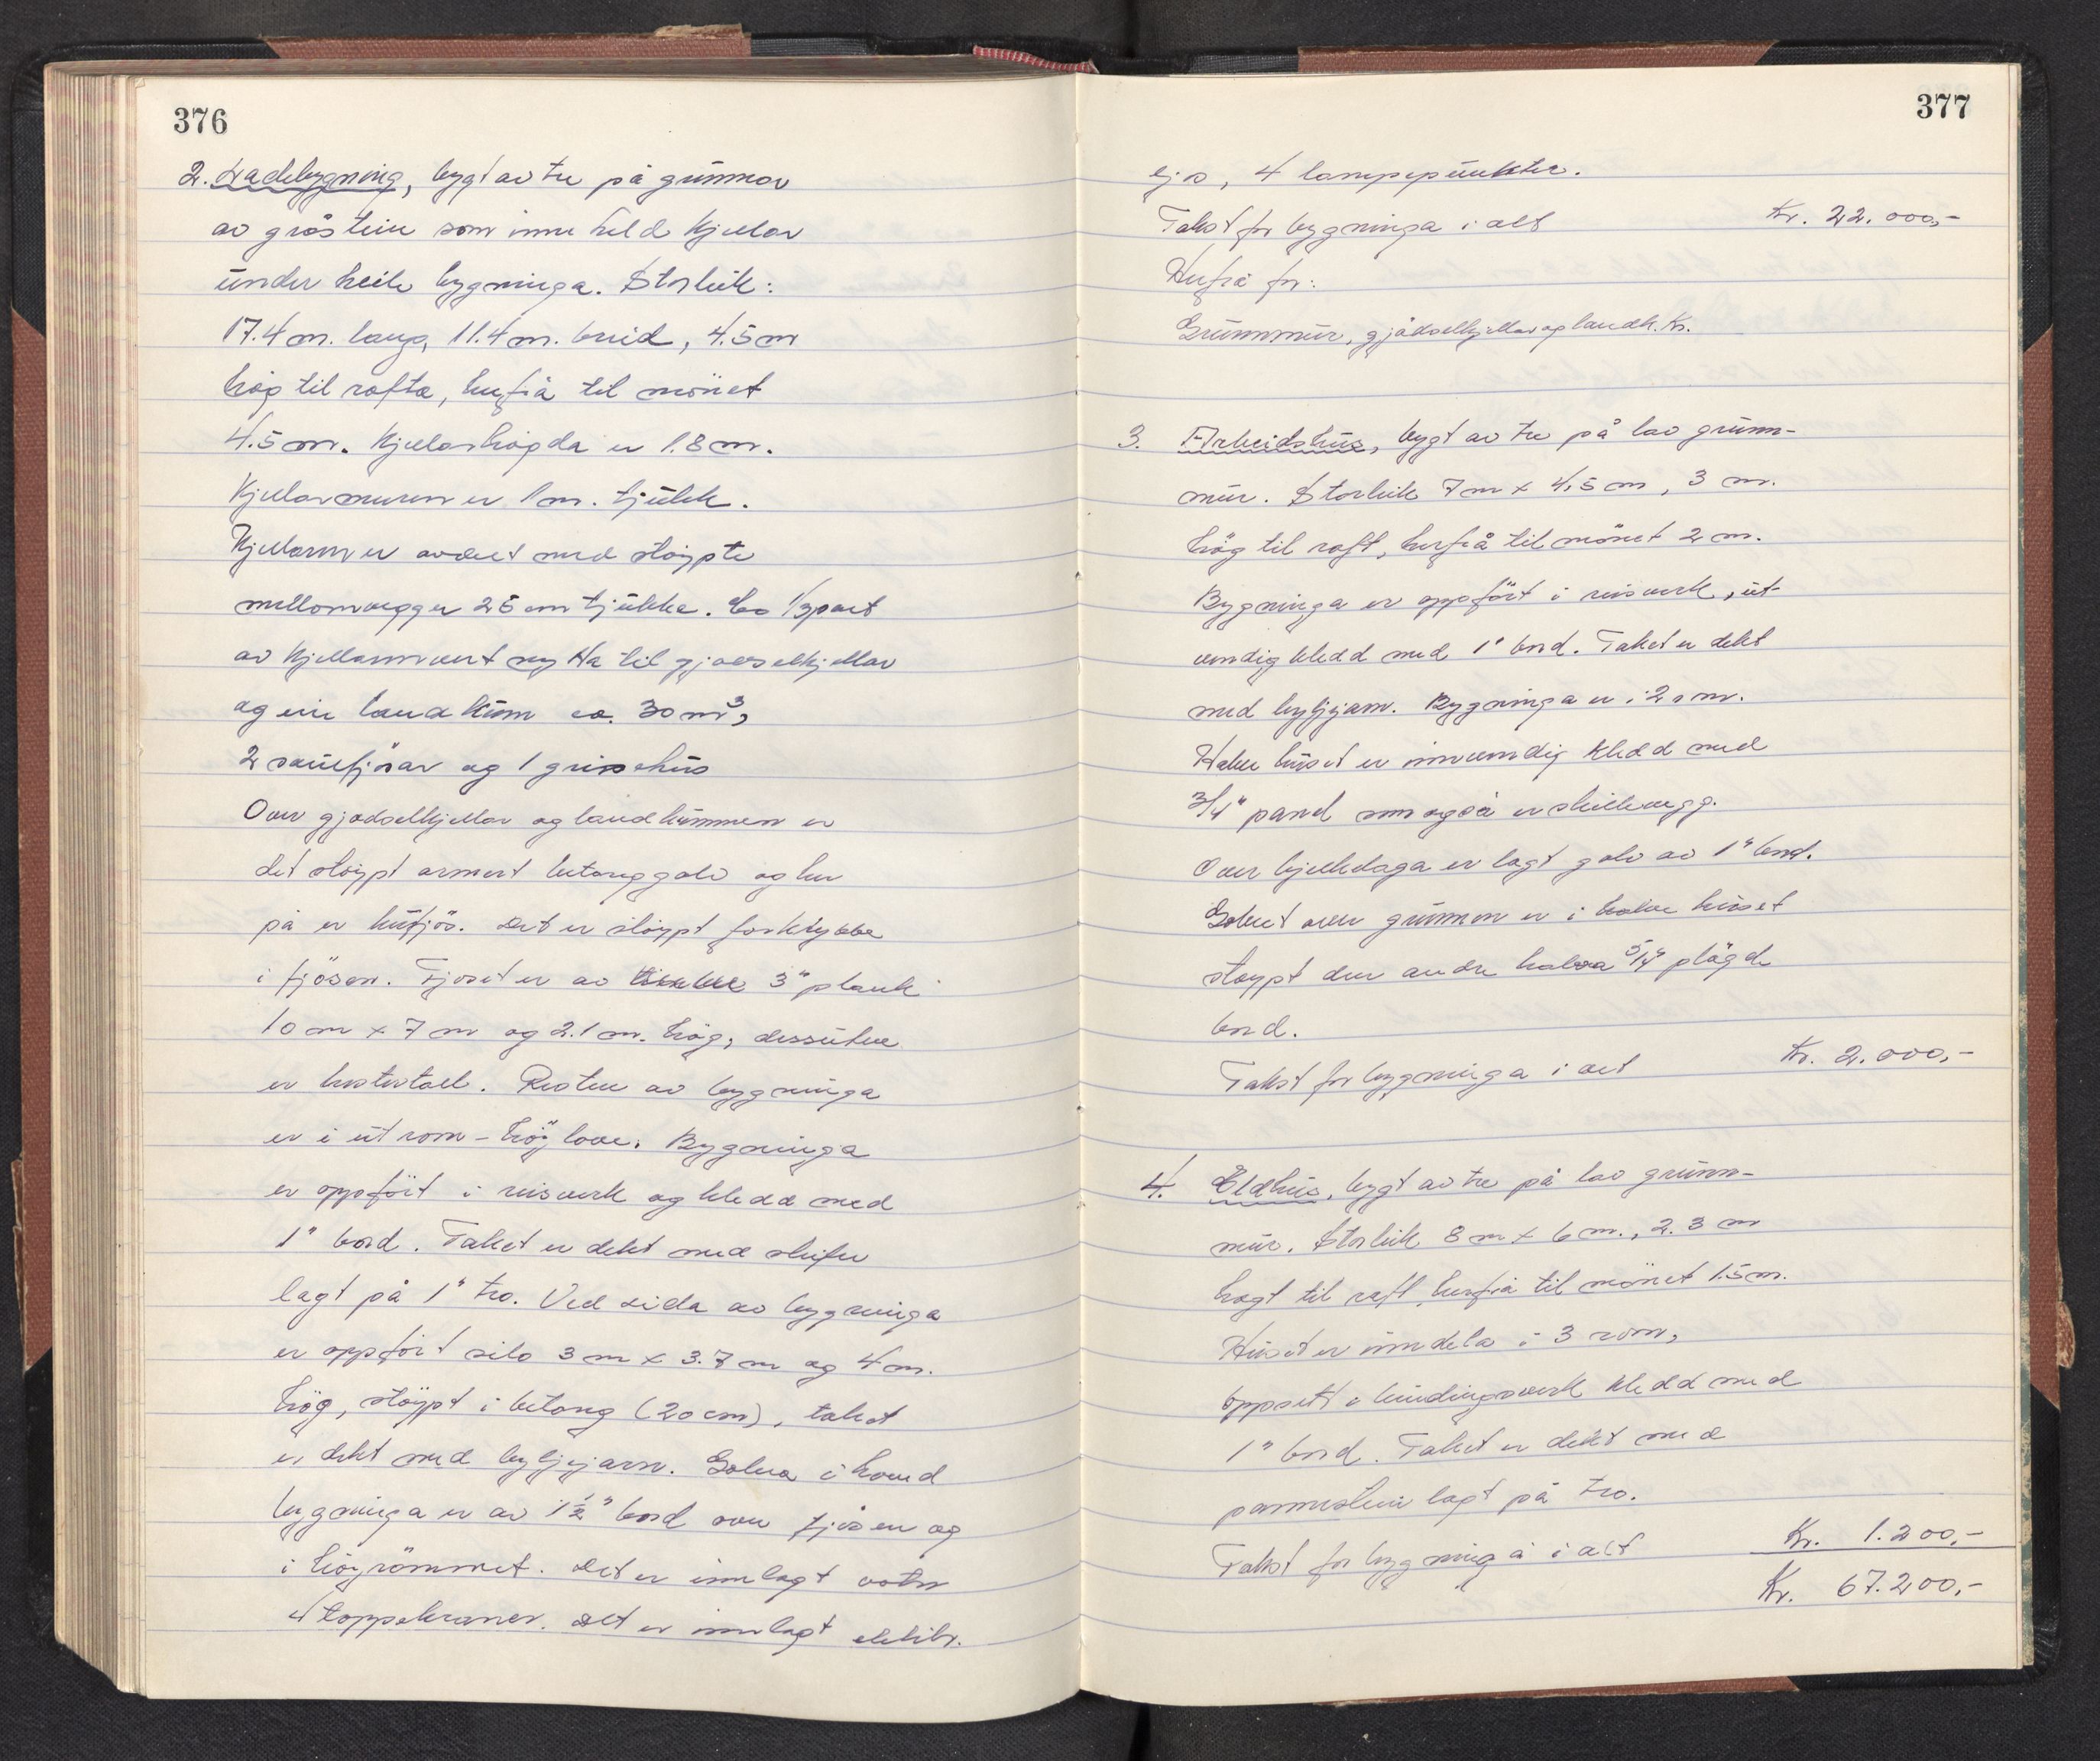 376
2. Ladebygning, bygt av tre på grunnar
av gråstein som inneheld kjellar
under heile bygninga. Storleik:
17.4 m. lang, 11.4 m. breid, 4.5 m
høg til rafta, herfrå til mönet
4.5 m. Kjellarhøgda er 1.8 m.
Kjellarmuren er 1 m. tjukk.
Kjellarn er avdelt med støypte
mellomvegger 25 cm tjukke. Ca 1/3 part
av kjellarn vert nytta til gjødselkjellar
og ein landkum ca. 30 m³,
2 sauefjösar og 1 grisehus
Over gjødselkjellar og landkummen er
det støypt armert betonggolv og her
på er kufjös. Det er støypt forkrybbe
i fjösen. Fjoset er av 3" plank
10 m x 7 m og 2.1 m. høg, dessuten
er hestestall. Resten av bygninga
er i eit rom - höyløve. Bygninga
er oppfört i reisverk og kledd med
1" bord. Taket er dekt med skifer
lagt på 1" tro. Ved sida av bygninga
er oppfört silo 3 m x 3.7 m og 4 m.
høg, støypt i betong (20 cm), taket
er dekt med bylgjejarn. Golva i hovud
bygninga er av 1½" bord over fjösen og
i höyrommet. Det er innlagt vatn
4 tappekraner. Det er innlagt elektr.
377
ljos, 4 lampepunkter.
Takst for bygninga i alt Kr. 22.000,-
Herfrå for:
Grunnmur, gjødselkjellar og landk. Kr.
3. Arbeidshus, bygt av tre på lav grunn-
mur. Storleik 7 m x 4,5 m, 3 m.
høg til raft, herfrå til mönet 2 m.
Bygninga er oppfört i reisverk, ut-
vendig kledd med 1" bord. Taket er dekt
med bylgjejarn. Bygninga er i 2 rom.
Halve huset er innvendig kledd med
3/4" panel som også er skillevegg.
Over bjelkelaga er lagt golv av 1" bord.
Golvet over grunnen er i halve huset
støypt den andre halva 5/4" pløgde
bord.
Takst for bygninga i alt Kr. 2.000,-
4. Eldhus, bygt av tre på lav grunn-
mur. Storleik 8 m x 6 m., 2.3 m
høgt til raft, herfrå til mönet 1.5 m.
Huset er inndela i 3 rom,
oppsett i bindingsverk kledd med
1" bord. Taket er dekt med
pannestein lagt på tro.
Takst for bygninga i alt Kr. 1.200,-
Kr. 67.200,-